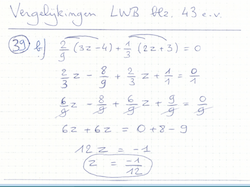 Vergelijkingen LWB blz. 43 e.v.
39 b) 2/9 (3z-4) + 1/3 (2z+3) = 0
2/3 z - 8/9 + 2/3 z + 1/1 = 0/1
6/9 z - 8/9 + 6/9 z + 9/9 = 0/9
6z + 6z = 0 + 8 - 9
12 z = -1
z = -1/12